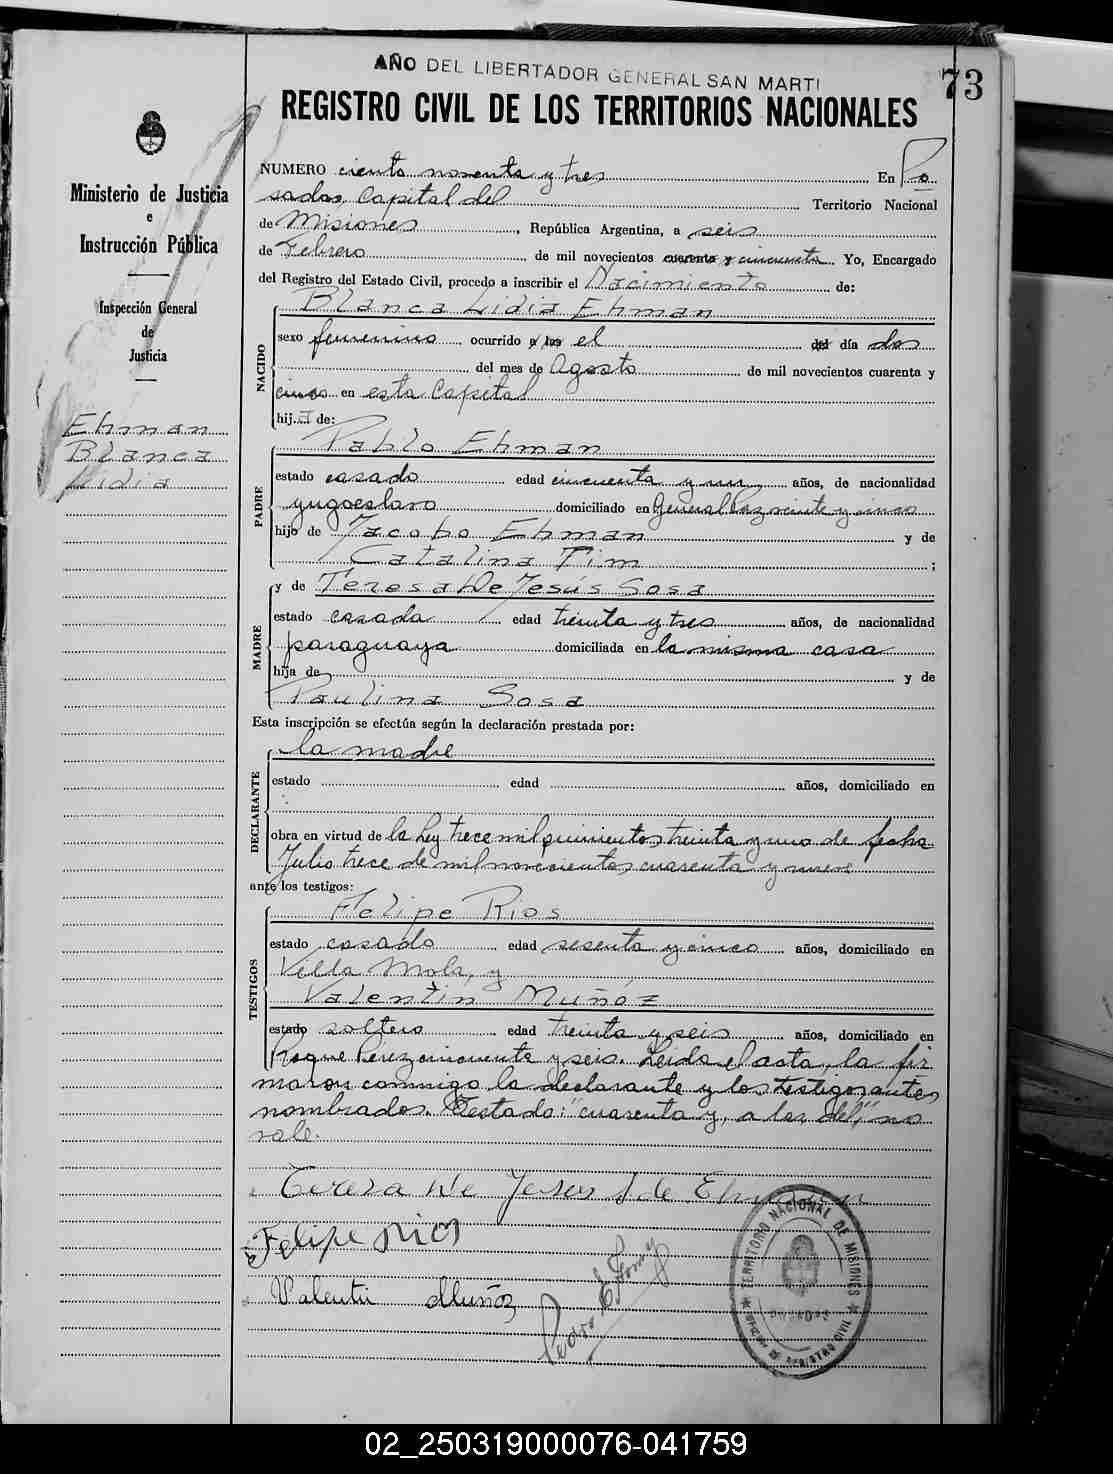 AÑO DEL LIBERTADOR GENERAL SAN MARTI
73
REGISTRO CIVIL DE LOS TERRITORIOS NACIONALES
Ministerio de Justicia
e
Instrucción Pública
Inspección General
de
Justicia
Ehman
Blanca
Lidia
NUMERO ciento noventa y tres En Po
sadas, Capital del Territorio Nacional
de Misiones, República Argentina, a seis
de Febrero de mil novecientos cuarenta y cincuenta. Yo, Encargado
del Registro del Estado Civil, procedo a inscribir el Nacimiento de:
NACIDO
Blanca Lidia Ehman
sexo femenino ocurrido a las el del día dos
del mes de Agosto de mil novecientos cuarenta y
cinco en esta Capital
hija de:
PADRE
Pablo Ehman
estado casado edad cincuenta y un años, de nacionalidad
yugoeslavo domiciliado en General Paz veinte y cinco
hijo de Jacobo Ehman y de
Catalina Tim;
MADRE
y de Teresa De Jesús Sosa
estado casada edad treinta y tres años, de nacionalidad
paraguaya domiciliada en la misma casa
hija de y de
Paulina Sosa
Esta inscripción se efectúa según la declaración prestada por:
DECLARANTE
la madre
estado edad años, domiciliado en
obra en virtud de la Ley trece mil quinientos treinta y uno de fecha
Julio trece de mil novecientos cuarenta y nueve
ante los testigos:
TESTIGOS
Felipe Rios
estado casado edad sesenta y cinco años, domiciliado en
Villa Mola, y
Valentín Muñóz
estado soltero edad treinta y seis años, domiciliado en
Roque Perez cincuenta y seis. Leida el acta, la fir
maron conmigo la declarante y los testigos antes
nombrados. Testado: "cuarenta y, a las, del," no
vale.
Tereza De Jesus S de Ehman
Felipe Rios
Valentin Muñoz
Pedro E
TERRITORIO NACIONAL DE MISIONES
POSADAS
REGISTRO CIVIL
02_250319000076-041759